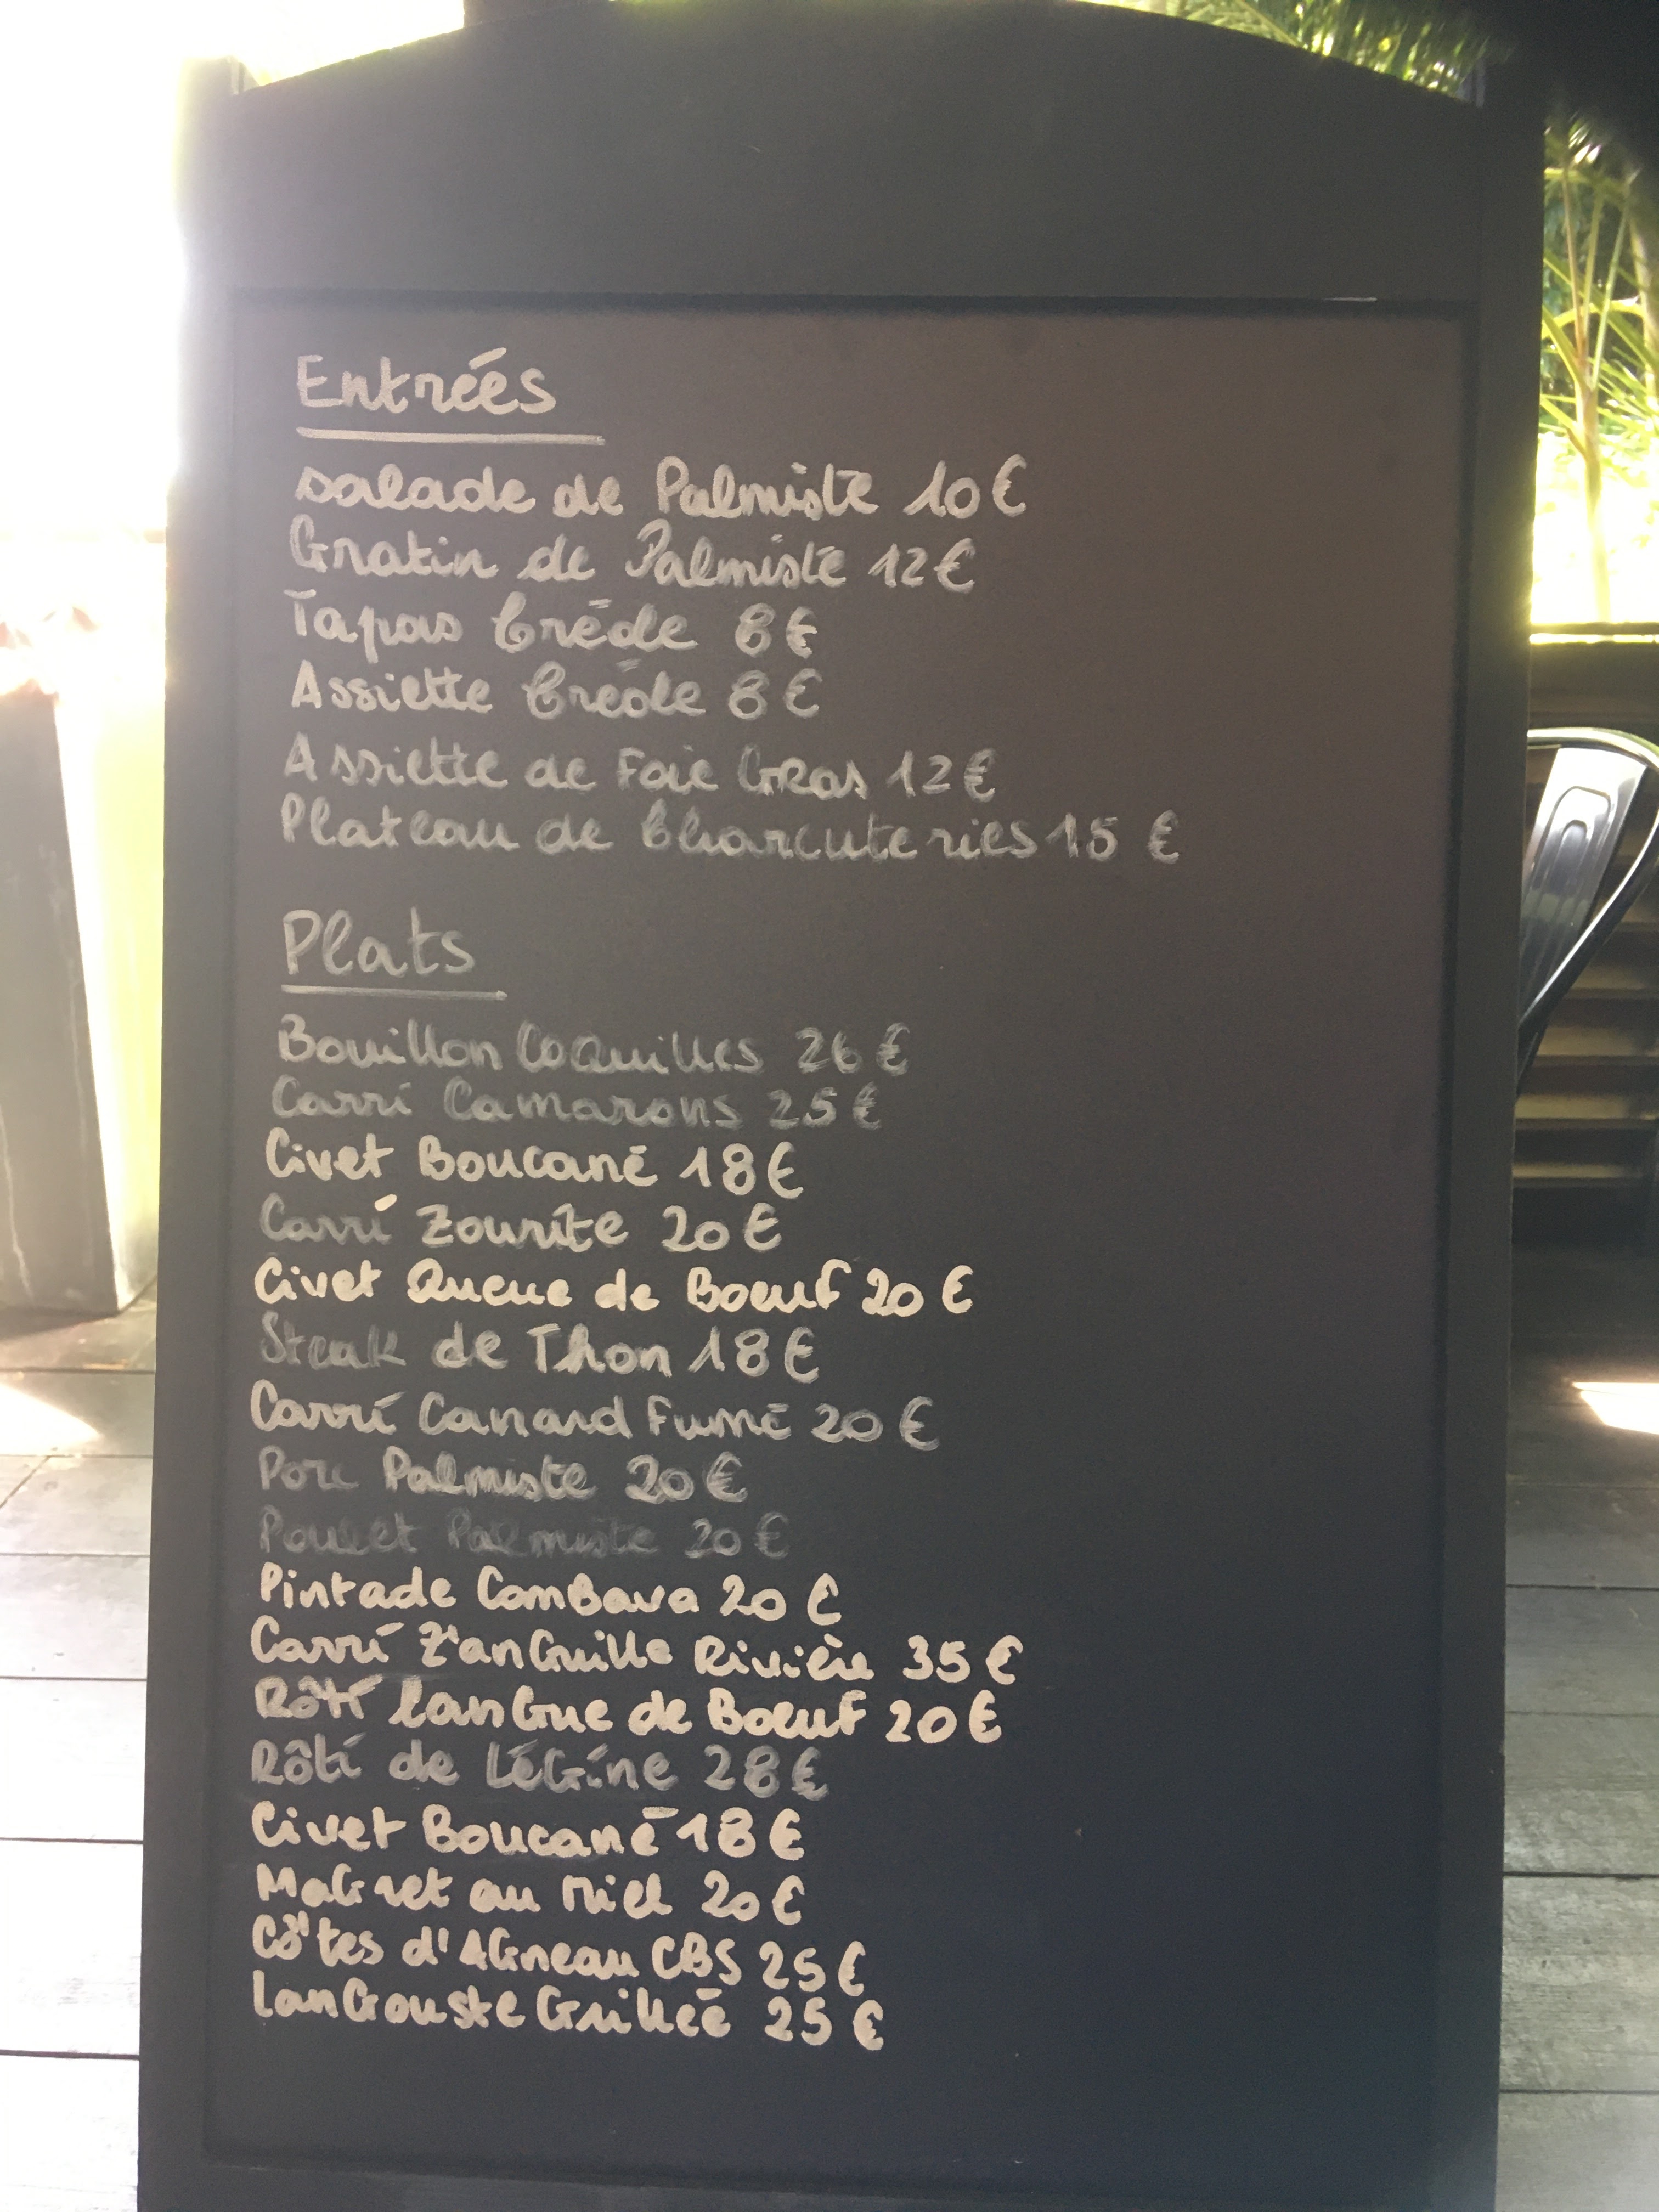 Entrées
salade de Palmiste 10€
Gratin de Palmiste 12€
Tapas Créole 8€
Assiette Créole 8€
Assiette de Foie Gras 12€
Plateau de Charcuteries 15 €
Plats
Bouillon Coquilles 26 €
Carri Camarons 25€
Civet Boucané 18€
Carri Zourite 20€
Civet Queue de Boeuf 20 €
Steak de Thon 18€
Carri Canard Fumé 20€
Porc Palmiste 20€
Poulet Palmiste 20€
Pintade ComBava 20 €
Carri Z'anGuille Rivière 35€
Rôti lanGue de Boeuf 20€
Rôti de LéGine 28€
Civet Boucané 18€
MaGret au Miel 20€
Côtes d'AGneau CBS 25€
LanGouste Grilleé 25 €